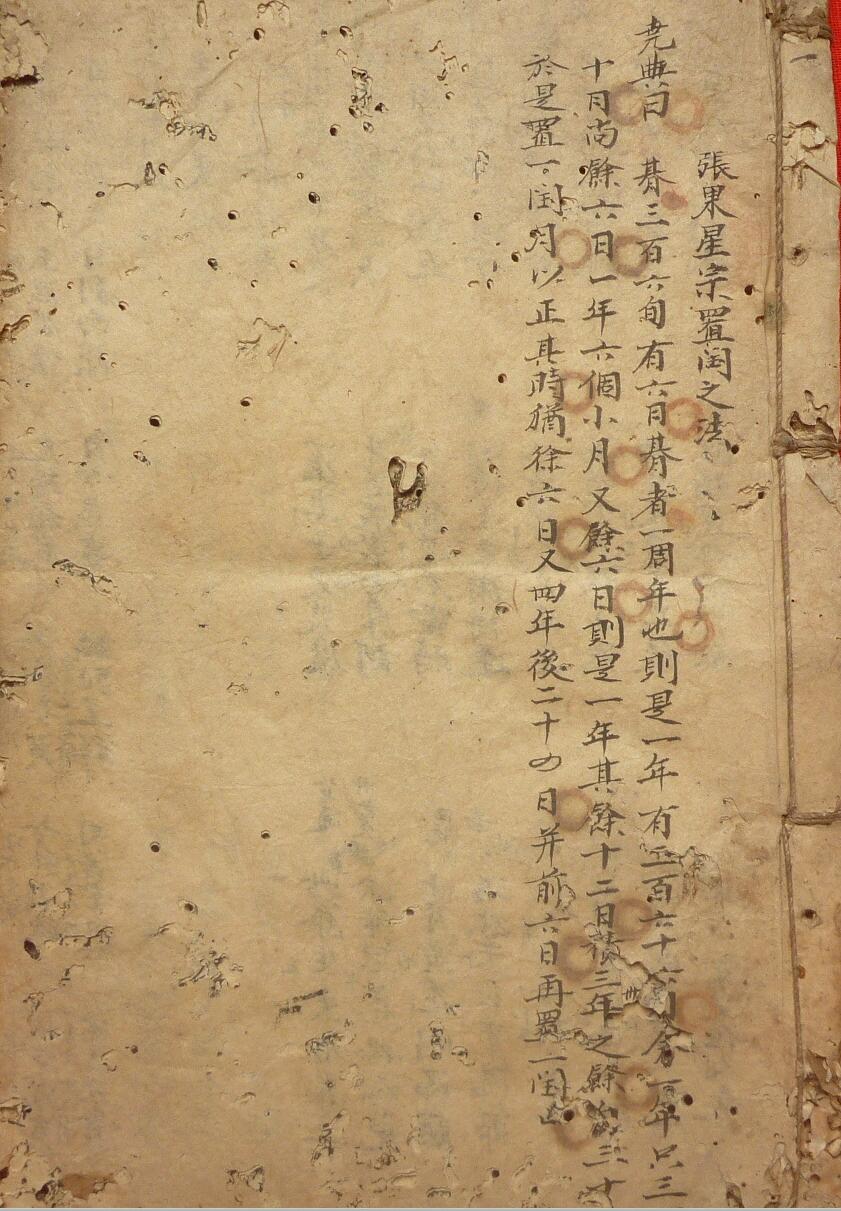 張果星宗置闰之法
尭典曰 朞三百六旬有六日朞者一周年也則是一年有三百六十六日今一年只三
十月尚餘六日一年六個小月又餘六日則是一年其餘十二日積三年之餘三十
於是置一闰月以正其時猶徐六日又四年後二十四日并前六日再置一闰